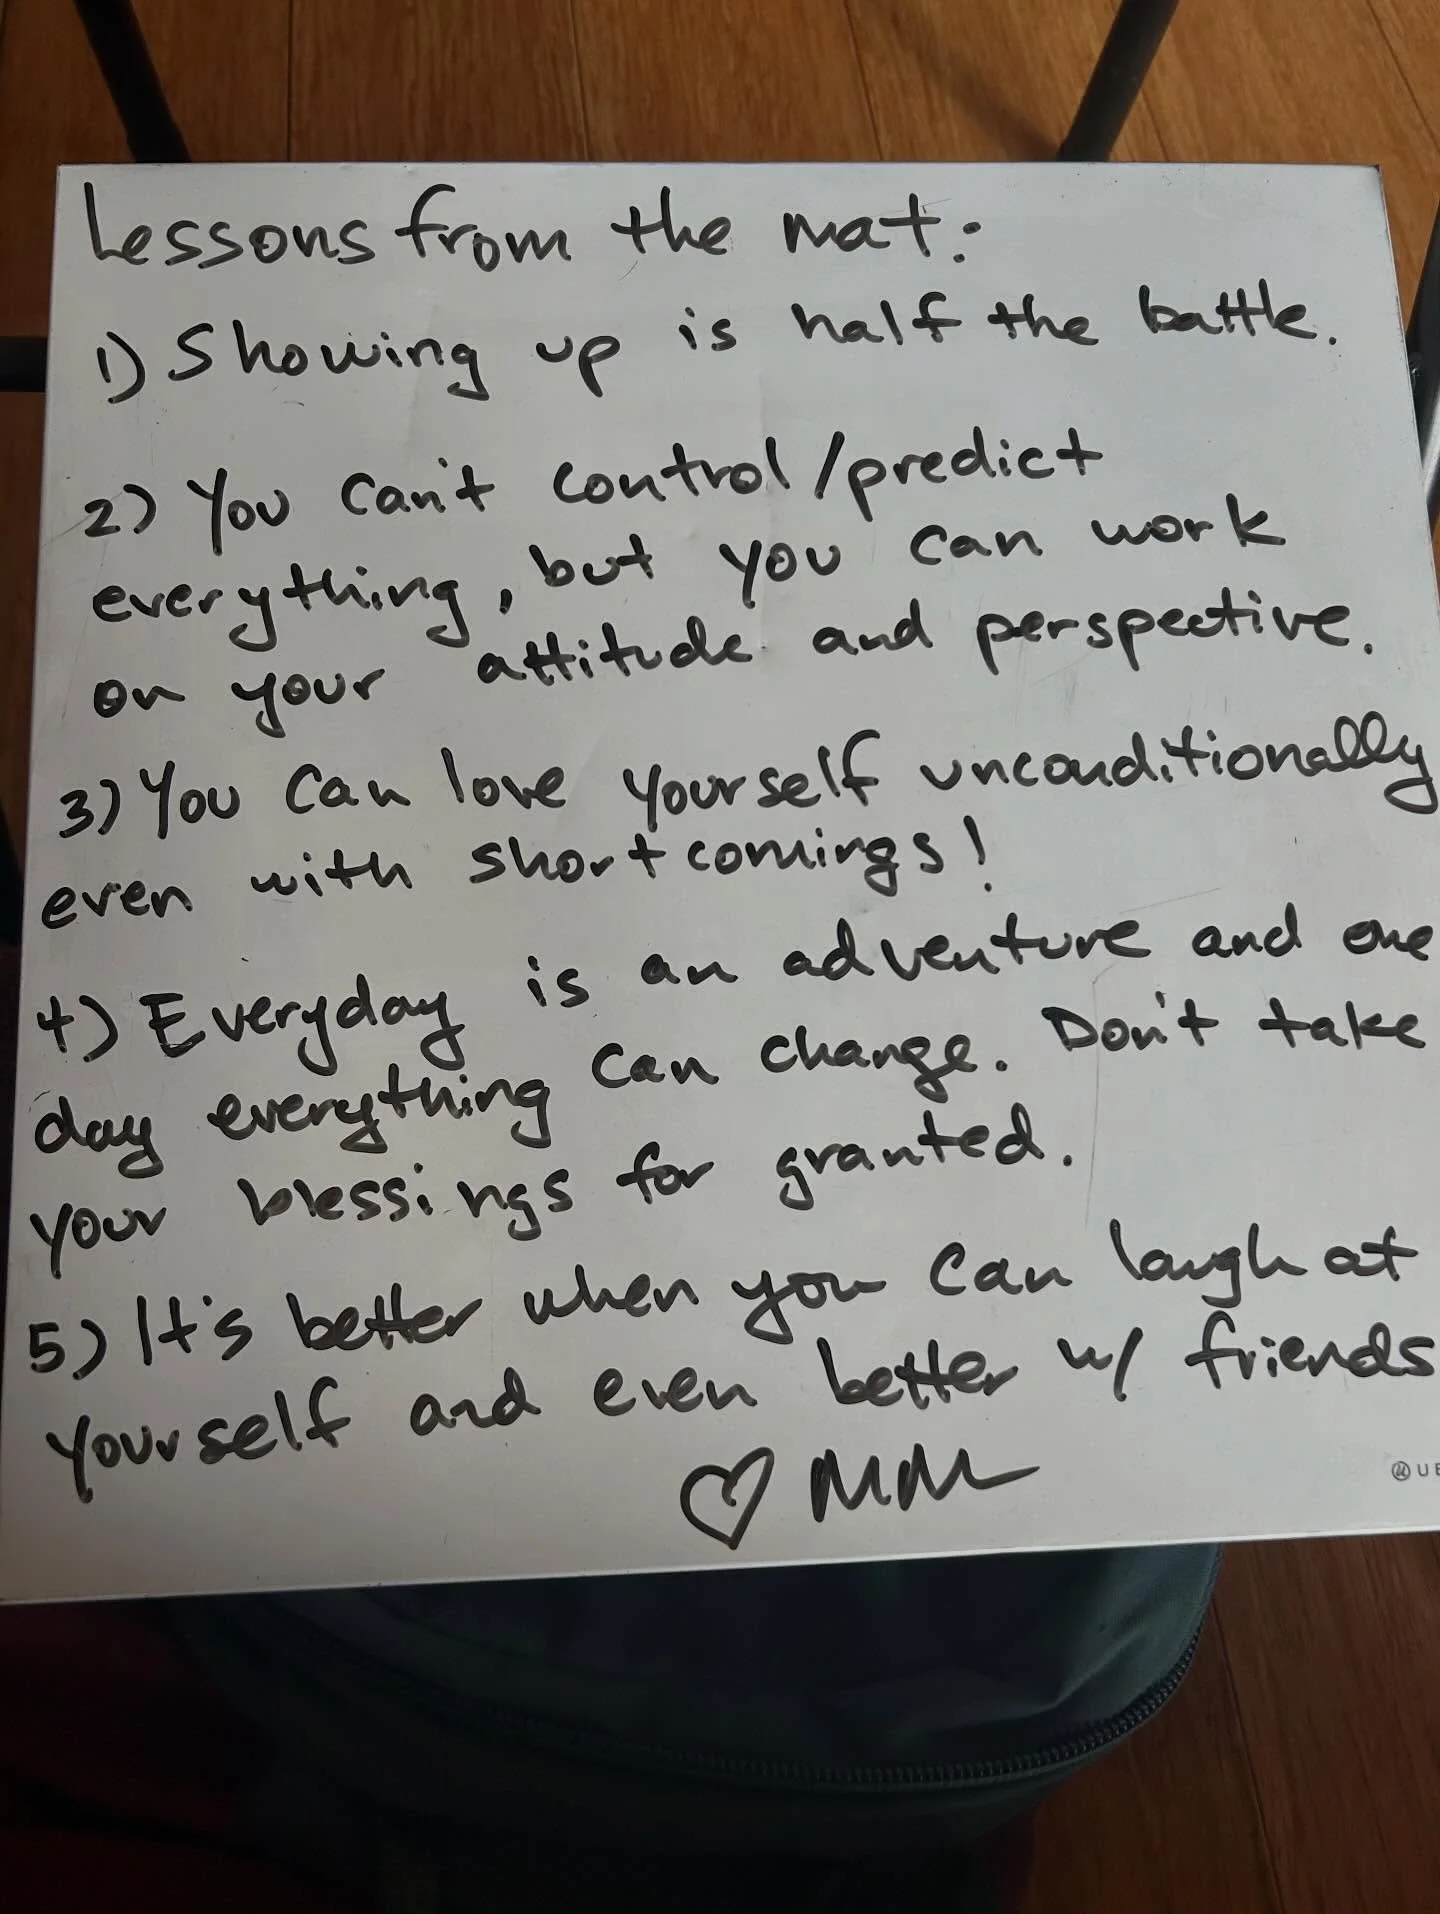 Lessons from the mat:
1) Showing up is half the battle.
2) You can't control/predict
everything, but you can work
on your attitude and perspective.
3) You can love yourself unconditionally
even with shortcomings!
4) Everyday is an adventure and one
day everything can change. Don't take
your blessings for granted.
5) It's better when you can laugh at
yourself and even better w/ friends
♡ MM